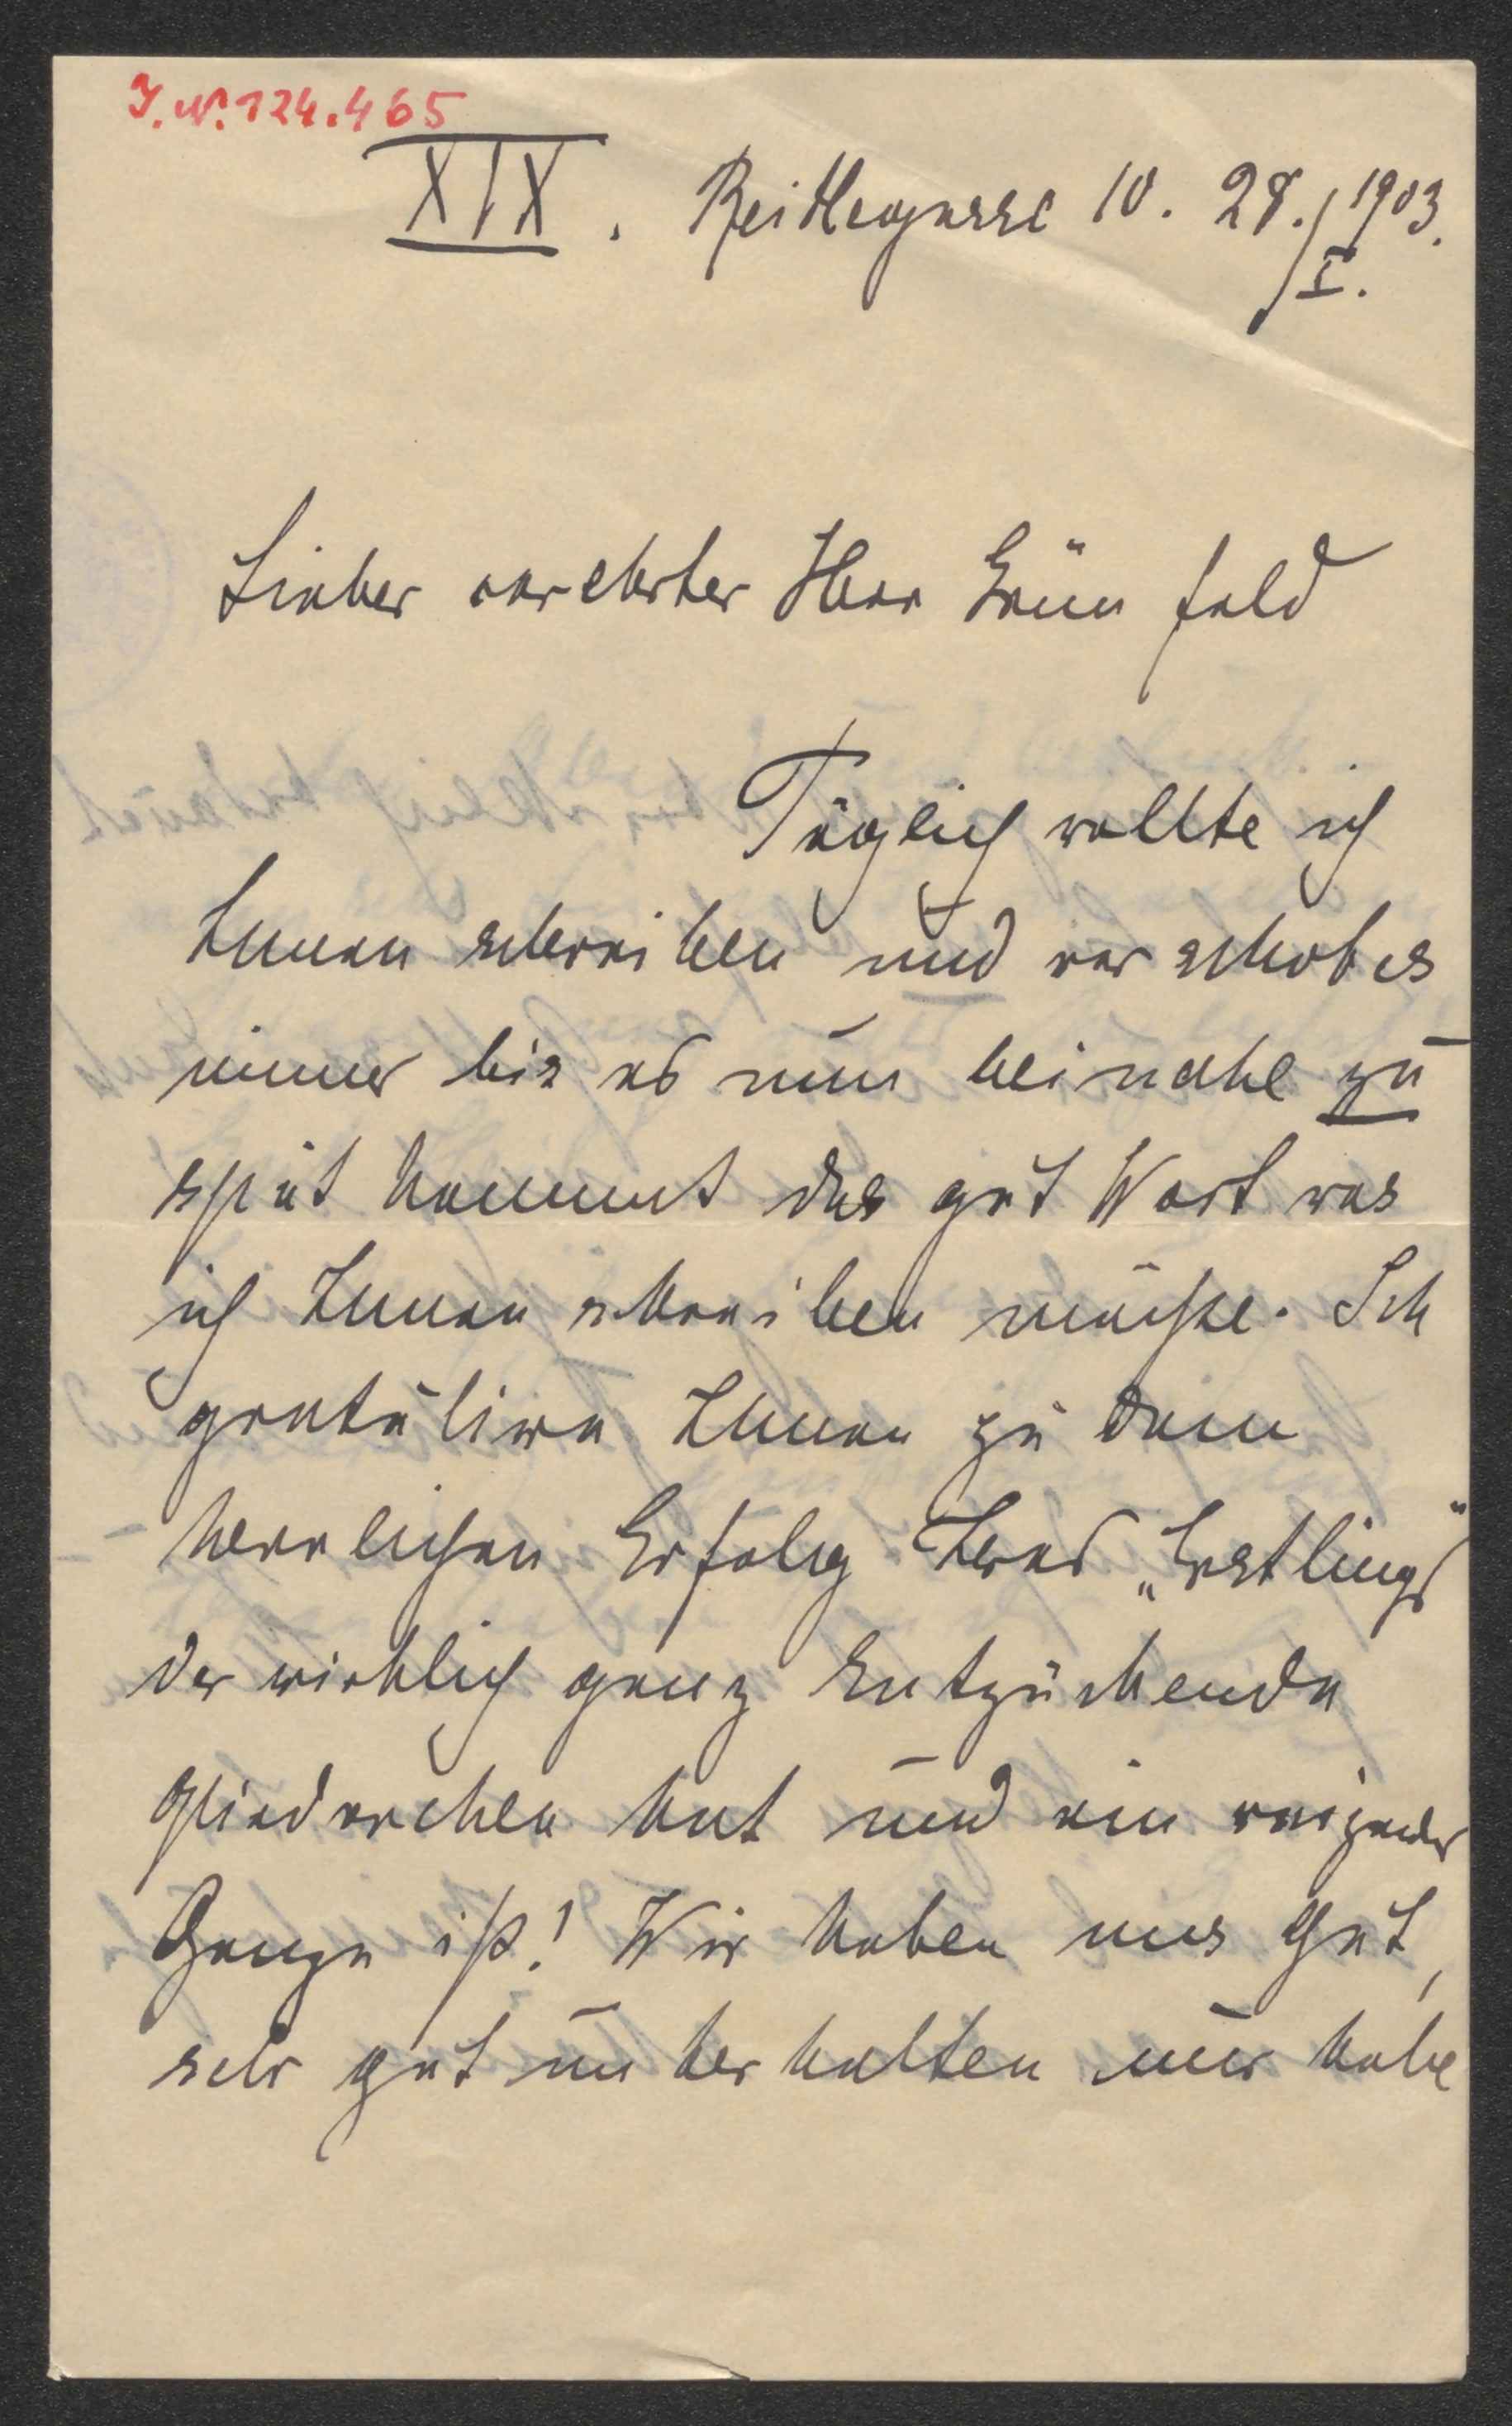 I.N. 124.465
XIX. Reithlegasse 10. 28./I. 1903.
Lieber verehrter Herr Grünfeld
Täglich wollte ich
Ihnen schreiben und verschob es
immer bis es nun beinahe zu
spät kommt das gut Wort was
ich Ihnen schreiben müsste. Ich
gratuliere Ihnen zu dem
herrlichen Erfolg Ihres „Erstlings“
der wirklich ganz Entzückende
Gliederchen hat und ein reizendes
Ganze ist! Wir haben uns gut,
sehr gut unterhalten nur habe